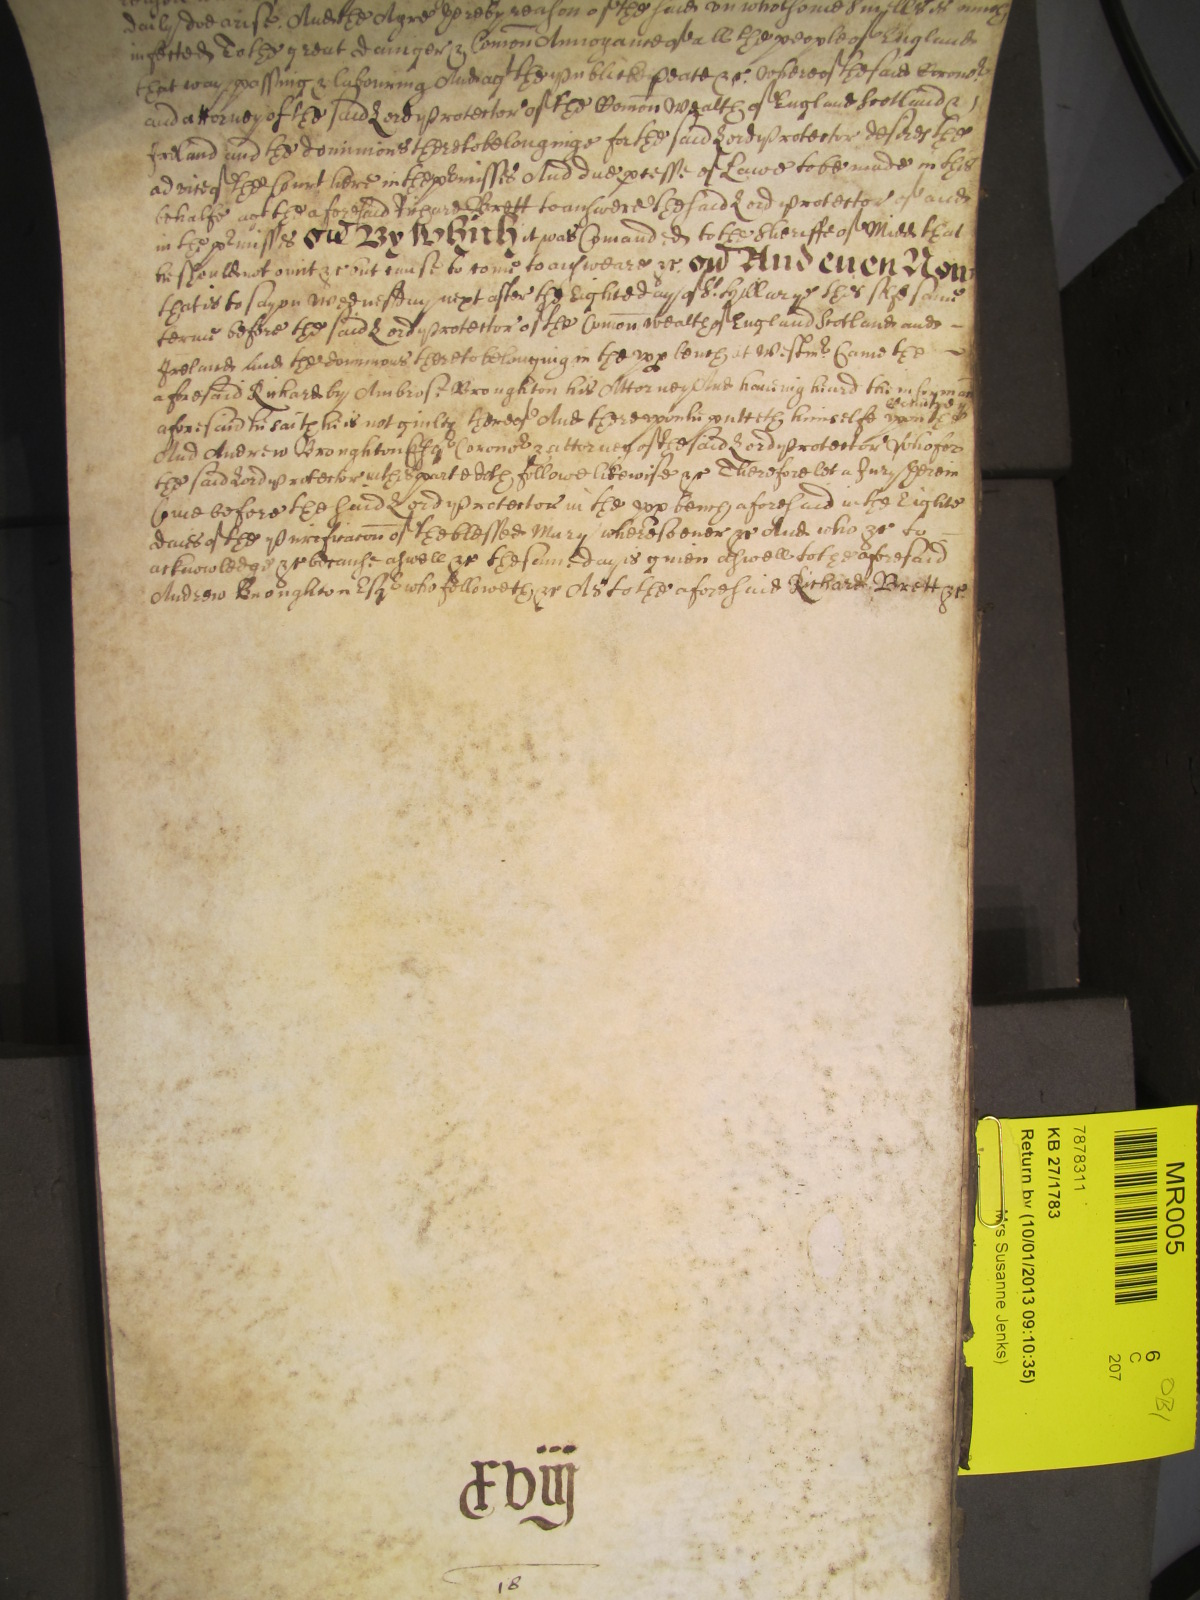 reason of the said vnwholsome smells is much
daily doe arise. And the Ayre hereby reason of the said vnwholsome smells is much
infected To the great damger & Comon Annoyance of all the people of England
that way passing & labouring And agt the publick peace &c. Whereof the said Corono
and attorney of the said Lord Protector of the Comon Wealth of England Scotland &
Ireland and the dominions thereto belonginge for the said Lord Protector desires the
advice of the Court here in the pmisses And due pcesse of Lawe to be made in this
behalfe agt the aforesaid Richard Brett to answere the said Lord Protector of and
in the pmisses By Which it was Comanded to the Sheriffe of Midd that
he should not omit &c but cause to come to answeare &c. And euen Now
that is to say on Wednesday next after the Eight day of St. Hillarye this same
terme before the said Lord Protector of the Comon wealth of England Scotland and
Ireland and the dominions thereto belonging in the vpp bench at Westmr Came the
aforesaid Richard by Ambrose Broughton his Attorney And haueing heard the informacon
aforesaid he saith he is not guilty thereof And therevpon he putteth himselfe vpon the Countrye
And Andrew Broughton Esqr Corono & attorney of the said Lord Protector who for
the said Lord Protector in this parte doth followe likewise &c Therefore let a Jury therein
Come before the said Lord Protector in the vpp bench aforesaid in the Eight
daies of the purificacon of the blessed Mary wheresoeuer &c And who &c to
acknowledge &c because aswell &c the same day is giuen aswell to the aforesaid
Andrew Broughton Esqr who followeth &c As to the aforesaid Richard Brett &c
xviij
18
MR005
6
C
207
OB1
7878311
KB 27/1783
Return by (10/01/2013 09:10:35)
Mrs Susanne Jenks)